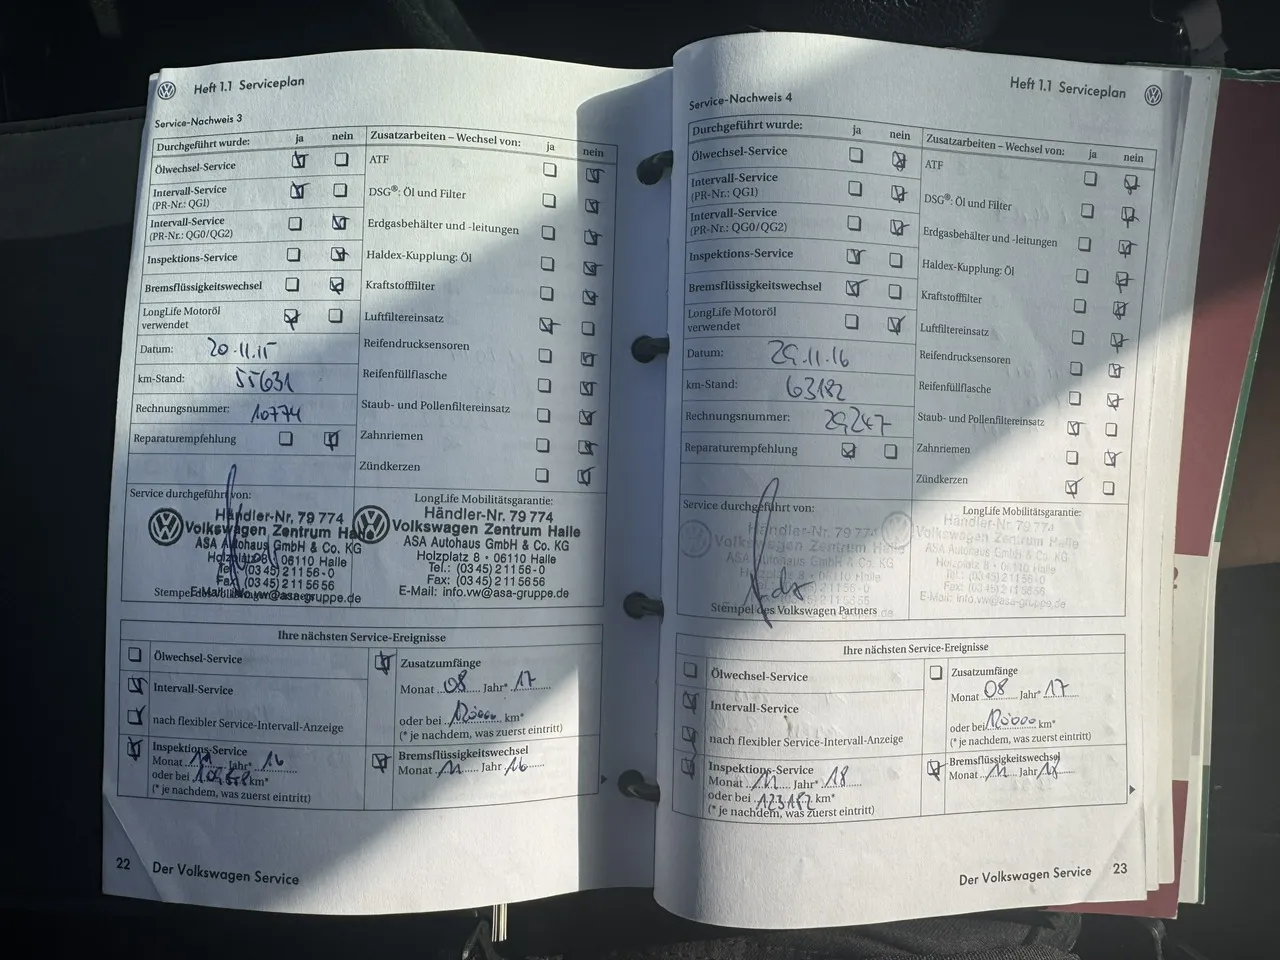 Heft 1.1 Serviceplan
Service-Nachweis 3
Durchgeführt wurde: ja nein
Ölwechsel-Service
Intervall-Service
(PR-Nr.: QG1)
Intervall-Service
(PR-Nr.: QG0/QG2)
Inspektions-Service
Bremsflüssigkeitswechsel
LongLife Motoröl
verwendet
Datum: 20.11.15
km-Stand: 55631
Rechnungsnummer: 10774
Reparaturempfehlung
Zusatzarbeiten – Wechsel von: ja nein
ATF
DSG®: Öl und Filter
Erdgasbehälter und -leitungen
Haldex-Kupplung: Öl
Kraftstofffilter
Luftfiltereinsatz
Reifendrucksensoren
Reifenfüllflasche
Staub- und Pollenfiltereinsatz
Zahnriemen
Zündkerzen
Service durchgeführt von:
Händler-Nr. 79 774
Volkswagen Zentrum Halle
ASA Autohaus GmbH & Co. KG
Holzplatz 8 · 06110 Halle
Tel.: (03 45) 2 11 56-0
Fax: (03 45) 2 11 56 56
E-Mail: info.vw@asa-gruppe.de
LongLife Mobilitätsgarantie:
Händler-Nr. 79 774
Volkswagen Zentrum Halle
ASA Autohaus GmbH & Co. KG
Holzplatz 8 · 06110 Halle
Tel.: (03 45) 2 11 56-0
Fax: (03 45) 2 11 56 56
E-Mail: info.vw@asa-gruppe.de
Ihre nächsten Service-Ereignisse
Ölwechsel-Service
Intervall-Service
nach flexibler Service-Intervall-Anzeige
Inspektions-Service
Monat 11 Jahr* 16
oder bei km*
(* je nachdem, was zuerst eintritt)
Zusatzumfänge
Monat 08 Jahr* 17
oder bei 120000 km*
(* je nachdem, was zuerst eintritt)
Bremsflüssigkeitswechsel
Monat 11 Jahr 16
22 Der Volkswagen Service
Heft 1.1 Serviceplan
Service-Nachweis 4
Durchgeführt wurde: ja nein
Ölwechsel-Service
Intervall-Service
(PR-Nr.: QG1)
Intervall-Service
(PR-Nr.: QG0/QG2)
Inspektions-Service
Bremsflüssigkeitswechsel
LongLife Motoröl
verwendet
Datum: 29.11.16
km-Stand: 63182
Rechnungsnummer: 29247
Reparaturempfehlung
Zusatzarbeiten – Wechsel von: ja nein
ATF
DSG®: Öl und Filter
Erdgasbehälter und -leitungen
Haldex-Kupplung: Öl
Kraftstofffilter
Luftfiltereinsatz
Reifendrucksensoren
Reifenfüllflasche
Staub- und Pollenfiltereinsatz
Zahnriemen
Zündkerzen
Service durchgeführt von:
Händler-Nr. 79 774
Volkswagen Zentrum Halle
ASA Autohaus GmbH & Co. KG
Holzplatz 8 · 06110 Halle
Stempel des Volkswagen Partners
LongLife Mobilitätsgarantie:
Händler-Nr. 79 774
Volkswagen Zentrum Halle
ASA Autohaus GmbH & Co. KG
Holzplatz 8 · 06110 Halle
Tel.: (03 45) 2 11 56-0
Fax: (03 45) 2 11 56 56
E-Mail: info.vw@asa-gruppe.de
Ihre nächsten Service-Ereignisse
Ölwechsel-Service
Intervall-Service
nach flexibler Service-Intervall-Anzeige
Inspektions-Service
Monat 11 Jahr* 18
oder bei 123182 km*
(* je nachdem, was zuerst eintritt)
Zusatzumfänge
Monat 08 Jahr* 17
oder bei 120000 km*
(* je nachdem, was zuerst eintritt)
Bremsflüssigkeitswechsel
Monat 11 Jahr 18
Der Volkswagen Service 23